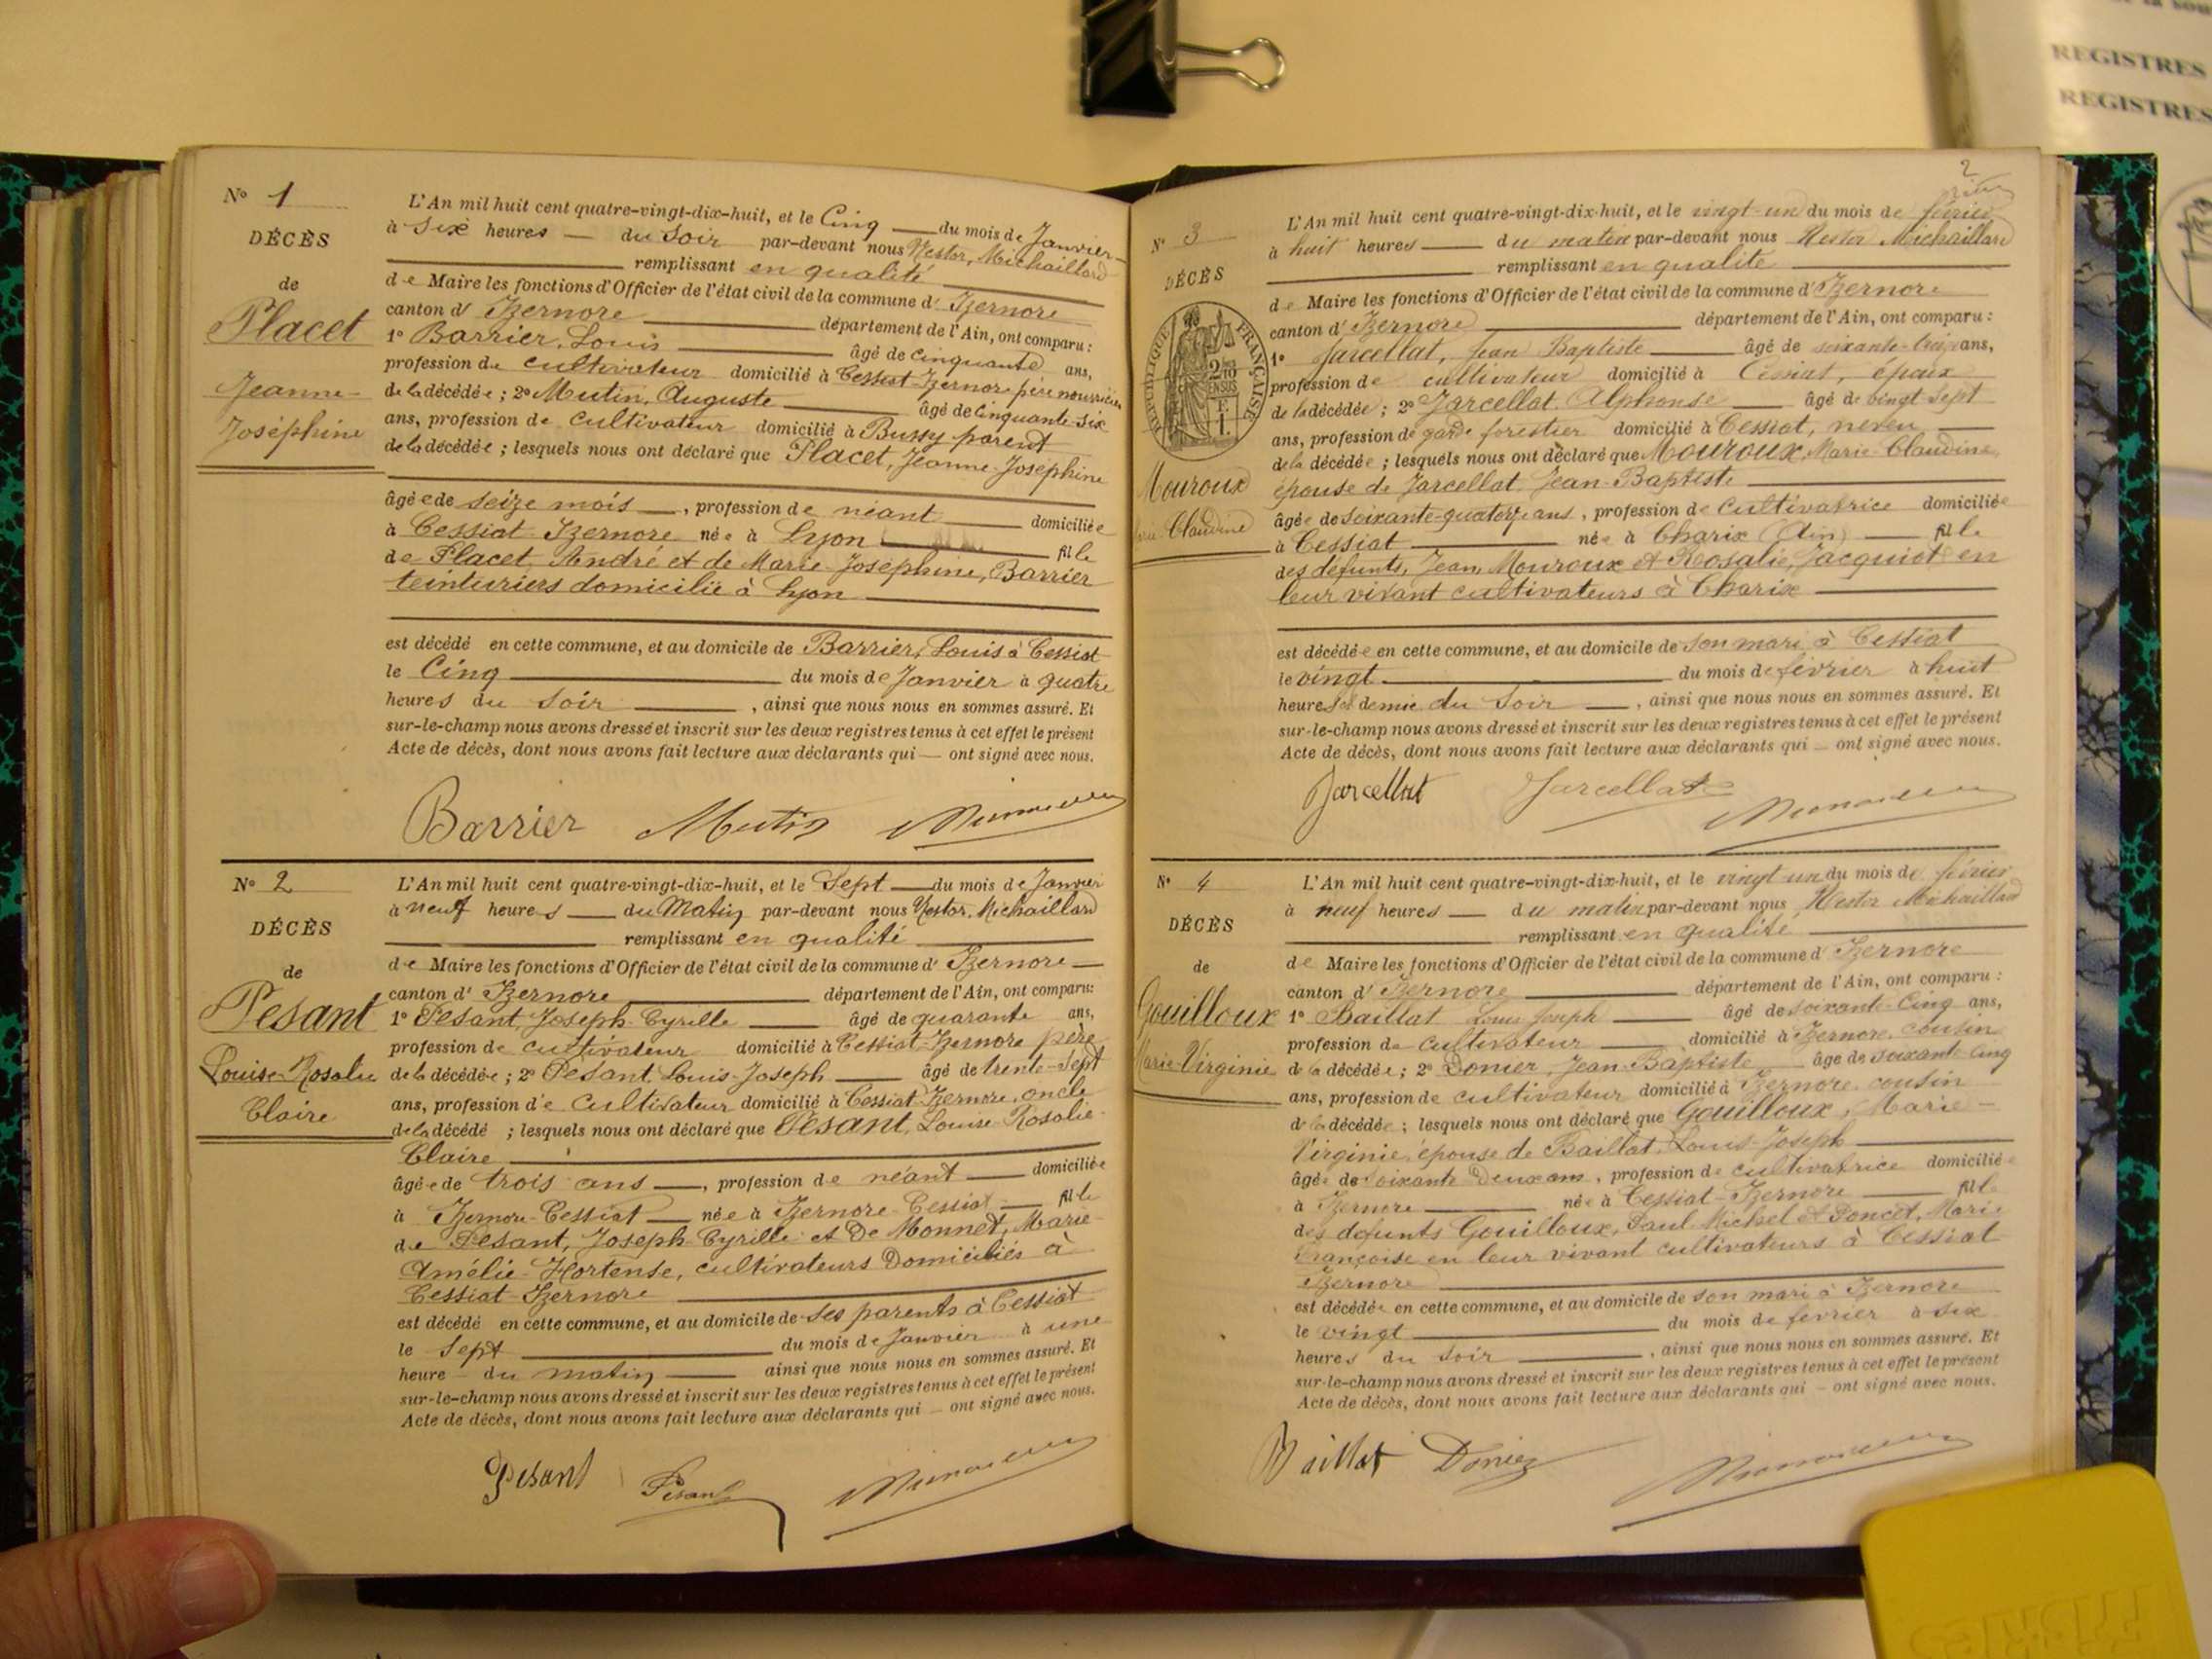 REGISTRES
REGISTRES
Nº 1
DÉCÈS
de
Placet
Jeanne-
Joséphine
L'An mil huit cent quatre-vingt-dix-huit, et le Cinq du mois de Janvier
à Six heures du Soir par-devant nous Nestor, Michaillard
remplissant en qualité
de Maire les fonctions d'Officier de l'état civil de la commune d' Izernore
canton d' Izernore département de l'Ain, ont comparu :
1º Barrier, Louis âgé de cinquante ans,
profession de cultivateur domicilié à Cessiat-Izernore père nourricier
de la décédée ; 2º Mutin, Auguste âgé de Cinquante-Six
ans, profession de cultivateur domicilié à Bussy parent
de la décédée ; lesquels nous ont déclaré que Placet, Jeanne-Joséphine
âgée de seize mois, profession de néant domiciliée
à Cessiat Izernore née à Lyon fille
de Placet, André et de Marie-Joséphine, Barrier
teinturiers domicilié à Lyon
est décédé en cette commune, et au domicile de Barrier, Louis à Cessiat
le Cinq du mois de Janvier à quatre
heures du Soir, ainsi que nous nous en sommes assuré. Et
sur-le-champ nous avons dressé et inscrit sur les deux registres tenus à cet effet le présent
Acte de décès, dont nous avons fait lecture aux déclarants qui — ont signé avec nous.
Barrier Mutin
Nº 2
DÉCÈS
de
Pesant
Louise-Rosalie
Claire
L'An mil huit cent quatre-vingt-dix-huit, et le Sept du mois de Janvier
à neuf heures du Matin par-devant nous Nestor, Michaillard
remplissant en qualité
de Maire les fonctions d'Officier de l'état civil de la commune d' Izernore
canton d' Izernore département de l'Ain, ont comparu:
1º Pesant Joseph-Cyrille âgé de quarante ans,
profession de cultivateur domicilié à Cessiat-Izernore père
de la décédée ; 2º Pesant, Louis-Joseph âgé de trente-Sept
ans, profession de Cultivateur domicilié à Cessiat-Izernore, oncle
de la décédé ; lesquels nous ont déclaré que Pesant, Louise-Rosalie-
Claire
âgée de trois ans, profession de néant domiciliée
à Izernore-Cessiat née à Izernore-Cessiat fille
de Pesant, Joseph-Cyrille et De Monnet, Marie-
Amélie-Hortense, cultivateurs Domiciliés à
Cessiat-Izernore
est décédé en cette commune, et au domicile de ses parents à Cessiat
le Sept du mois de Janvier à une
heure du matin ainsi que nous nous en sommes assuré. Et
sur-le-champ nous avons dressé et inscrit sur les deux registres tenus à cet effet le présent
Acte de décès, dont nous avons fait lecture aux déclarants qui — ont signé avec nous.
Pesant Pesant
2
Nº 3
DÉCÈS
RÉPUBLIQUE FRANÇAISE
Mouroux
Marie-Claudine
L'An mil huit cent quatre-vingt-dix-huit, et le vingt-un du mois de février
à huit heures du matin par-devant nous Nestor Michaillard
remplissant en qualité
de Maire les fonctions d'Officier de l'état civil de la commune d'Izernore
canton d' Izernore département de l'Ain, ont comparu :
1º Jarcellat, Jean Baptiste âgé de soixante-treize ans,
profession de cultivateur domicilié à Cessiat, époux
de la décédée ; 2º Jarcellat, Alphonse âgé de vingt Sept
ans, profession de garde forestier domicilié à Cessiat, neveu
de la décédée ; lesquels nous ont déclaré que Mouroux, Marie-Claudine,
épouse de Jarcellat, Jean-Baptiste
âgée de soixante-quatorze ans, profession de cultivatrice domiciliée
à Cessiat née à Charix (Ain) fille
des défunts, Jean, Mouroux et Rosalie, Jacquiot en
leur vivant cultivateurs à Charix
est décédée en cette commune, et au domicile de son mari à Cessiat
le vingt du mois de février à huit
heures et demie du Soir, ainsi que nous nous en sommes assuré. Et
sur-le-champ nous avons dressé et inscrit sur les deux registres tenus à cet effet le présent
Acte de décès, dont nous avons fait lecture aux déclarants qui — ont signé avec nous.
Jarcellat Jarcellat
Nº 4
DÉCÈS
de
Gouilloux
Marie-Virginie
L'An mil huit cent quatre-vingt-dix-huit, et le vingt-un du mois de février
à neuf heures du matin par-devant nous Nestor Michaillard
remplissant en qualité
de Maire les fonctions d'Officier de l'état civil de la commune d' Izernore
canton d' Izernore département de l'Ain, ont comparu :
1º Baillat Louis Joseph âgé de soixante-Cinq ans,
profession de cultivateur domicilié à Izernore, cousin
de la décédée ; 2º Donier, Jean-Baptiste âgé de soixante cinq
ans, profession de cultivateur domicilié à Izernore, cousin
de la décédée ; lesquels nous ont déclaré que Gouilloux, Marie-
Virginie, épouse de Baillat, Louis-Joseph
âgée de soixante Deux ans, profession de cultivatrice domiciliée
à Izernore née à Cessiat-Izernore fille
des défunts Gouilloux, Paul Michel et Poncet, Marie
Françoise en leur vivant cultivateurs à Cessiat
Izernore
est décédée en cette commune, et au domicile de son mari à Izernore
le vingt du mois de février à six
heures du Soir, ainsi que nous nous en sommes assuré. Et
sur-le-champ nous avons dressé et inscrit sur les deux registres tenus à cet effet le présent
Acte de décès, dont nous avons fait lecture aux déclarants qui — ont signé avec nous.
Baillat Donier